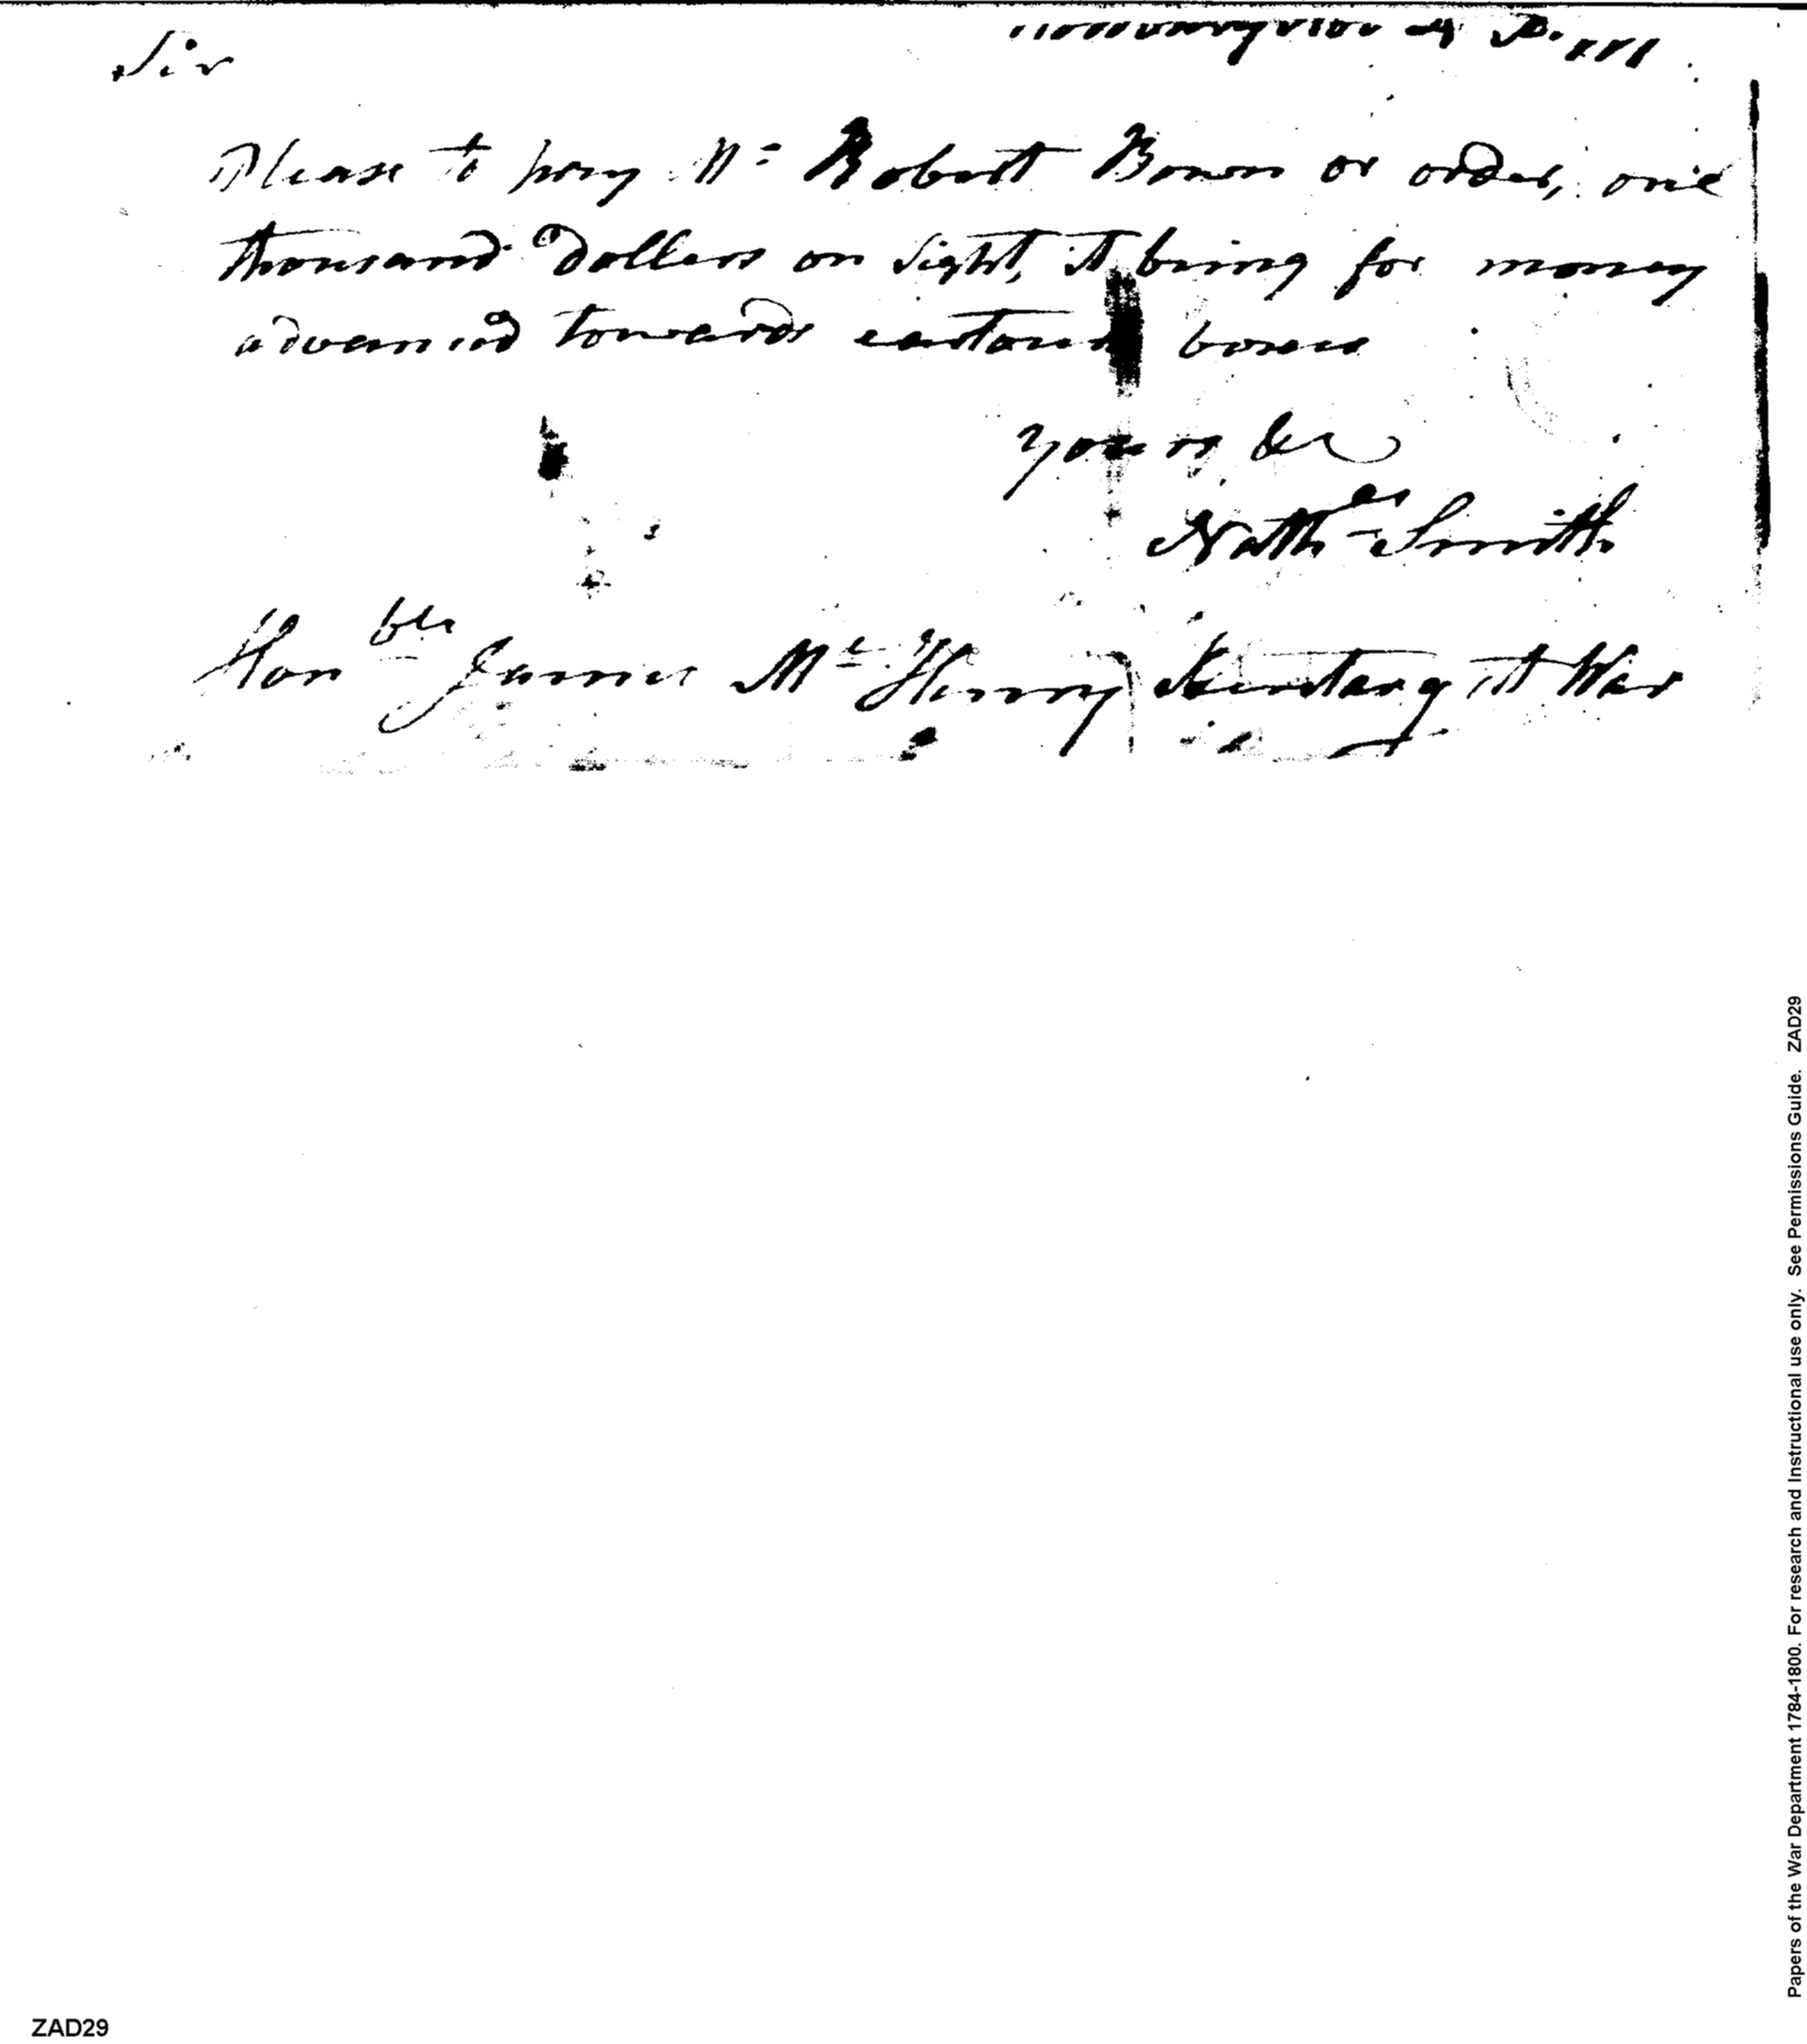 Sir
Please to pay Mr Robert Bowne or order, one
thousand Dollers on sight, it being for money
advanced towards boxes
yours &c
Nathl Smith
Honble James McHenry Secretary at War
Papers of the War Department 1784-1800. For research and Instructional use only. See Permissions Guide. ZAD29
ZAD29